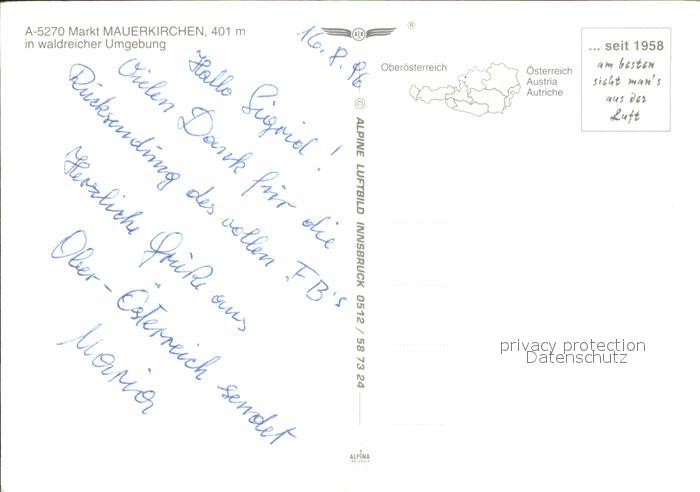 A-5270 Markt MAUERKIRCHEN, 401 m
in waldreicher Umgebung
16.8.96
Hallo Sigrid!
Vielen Dank für die
Rücksendung des vollen FB's
Herzliche Grüße aus
Ober-Österreich sendet
Maria
®
ALPINE LUFTBILD INNSBRUCK 0512 / 58 73 24
ALPINA
Oberösterreich
Österreich
Austria
Autriche
... seit 1958
am besten
sieht man's
aus der
Luft
privacy protection
Datenschutz